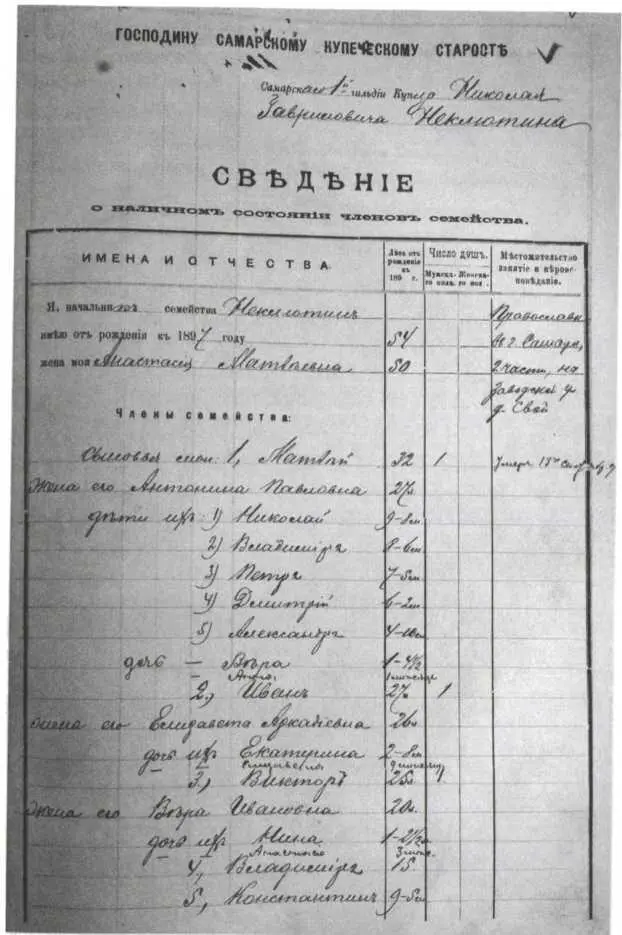 ГОСПОДИНУ САМАРСКОМУ КУПЕЧЕСКОМУ СТАРОСТѢ
Самарскаго 1й гильдіи Купца Николая
Гавриловича Неклютина
СВѢДѢНІЕ
о наличномъ состояніи членовъ семейства.
ИМЕНА И ОТЧЕСТВА.
Лѣта отъ рожденія къ 189 г.
Число душъ.
Мужеск-го пола. Женска-го пол.
Мѣстожительство занятіе и вѣроисповѣданіе.
Я, начальникъ семейства Неклютинъ
имѣю отъ рожденія къ 1897 году 54
жена моя Анастасія Матвѣевна 50
Православн.
въ г. Самарѣ,
2 части, на
Заводской у.
д. Свой
Члены семейства:
Сыновья мои: 1, Матвѣй 32 1 умеръ
Жена его Антонина Павловна 27
дѣти ихъ 1) Николай 9-8м
2) Владиміръ 8-6м
3) Петръ 7-5м
4) Дмитрій 6-2м
5) Александръ 4-10м
дочь — Вѣра 1-4½
2, Иванъ 27 1
Жена его Елизавета Аркадіевна 26
дочь ихъ Екатерина 2-8м
Елизавета
3, Викторъ 25 1
Жена его Вѣра Ивановна 20
дочь ихъ Нина 1-2½
Анастасія 3 мѣс.
4, Владиміръ 15
5, Константинъ 9-5м